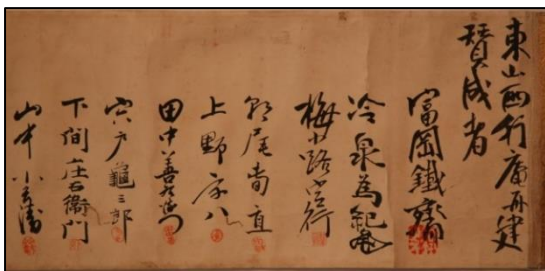 東山西行庵再建
賛成者
富岡鐵齋
冷泉為紀
梅小路定行
尾直
上野八
田中善
宍戸龜三郎
下間庄右衛門
山本小兵衛